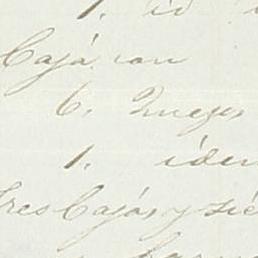 1. id
Cajá con
6. Quejes
1. iden
Tres Cajas y sié